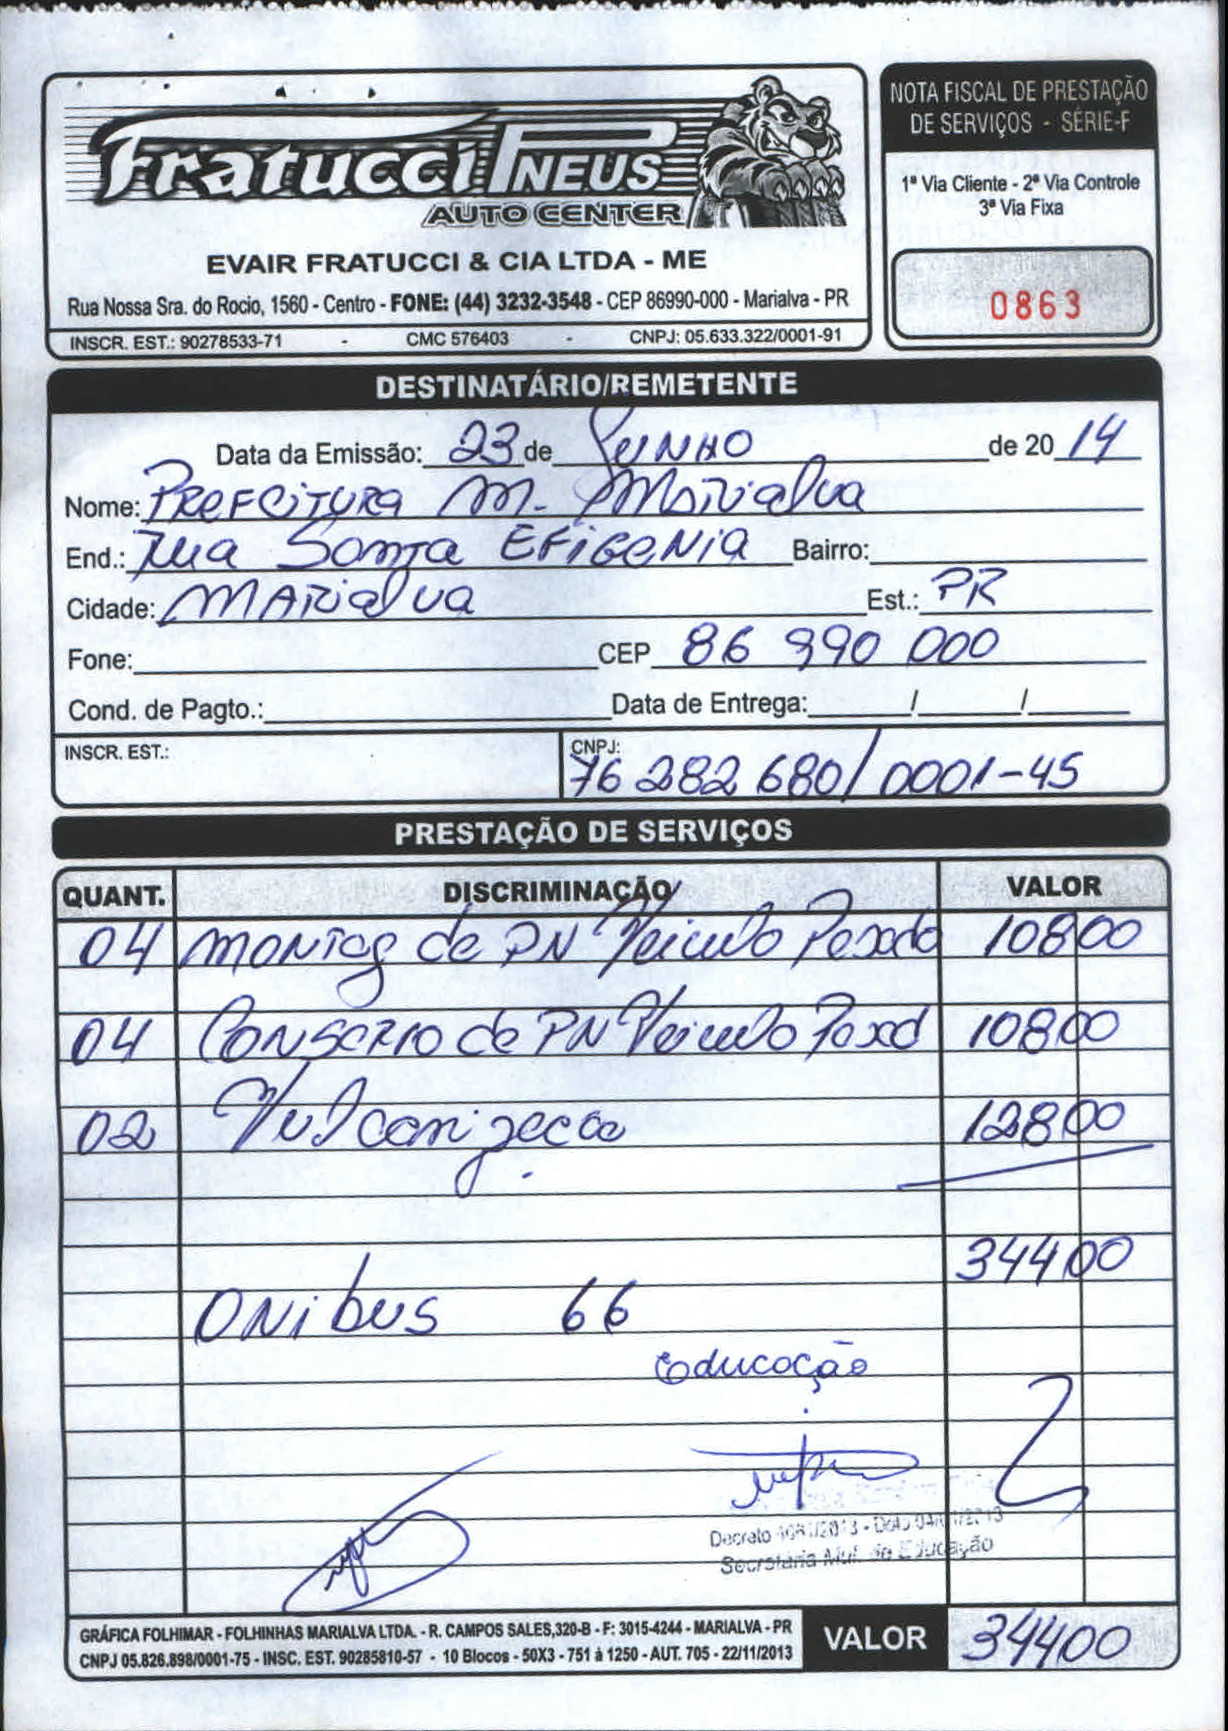 Fratucci PNEUS
AUTO CENTER
EVAIR FRATUCCI & CIA LTDA - ME
Rua Nossa Sra. do Rocio, 1560 - Centro - FONE: (44) 3232-3548 - CEP 86990-000 - Marialva - PR
INSCR. EST.: 90278533-71 - CMC 576403 - CNPJ: 05.633.322/0001-91
NOTA FISCAL DE PRESTAÇÃO
DE SERVIÇOS - SÉRIE-F
1ª Via Cliente - 2ª Via Controle
3ª Via Fixa
0863
DESTINATÁRIO/REMETENTE
Data da Emissão: 23 de JUNHO de 20 14
Nome: PREFEITURA M. MARialva
End.: Rua Santa EFiGeNia Bairro:
Cidade: MARialva Est.: PR
Fone: CEP 86 990 000
Cond. de Pagto.: Data de Entrega: / /
INSCR. EST.: CNPJ:
76 282 680/0001-45
PRESTAÇÃO DE SERVIÇOS
QUANT. DISCRIMINAÇÃO VALOR
04 MONTag de PN Veiculo Pesado 108 00
04 CONSERTO de PN Veiculo Pesad 108 00
02 Vulcanizacao 128 00
344 00
ONibus 66
Educação
Decreto
Secretaria Mul. de Educação
GRÁFICA FOLHIMAR - FOLHINHAS MARIALVA LTDA. - R. CAMPOS SALES,320-B - F: 3015-4244 - MARIALVA - PR
CNPJ 05.826.898/0001-75 - INSC. EST. 90285810-57 - 10 Blocos - 50X3 - 751 à 1250 - AUT. 705 - 22/11/2013
VALOR 344 00